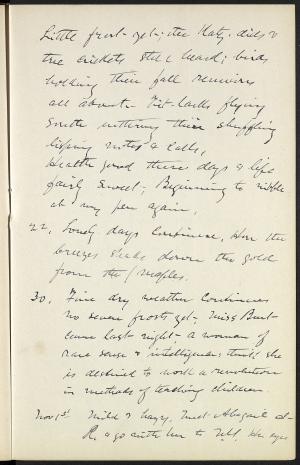 Little frost yet; the Katy-dids &
tree crickets still heard; birds
holding their fall reunions
all about. Tit-larks flying
south uttering their shuffling
lisping notes & calls,
Health good these days & life
fairly sweet; Beginning to nibble
at my pen again.
22, Lovely days continue, How the
breezes shake down the gold
from the maples.
30. Fine dry weather continues
no severe frosts yet, Miss Burt
came last night - a woman of
rare sense & intelligence: think she
is destined to work a revolution
in methods of teaching children
Nov 1st Mild & hazy, Meet Abigail at
R. & go with her to Her eyes